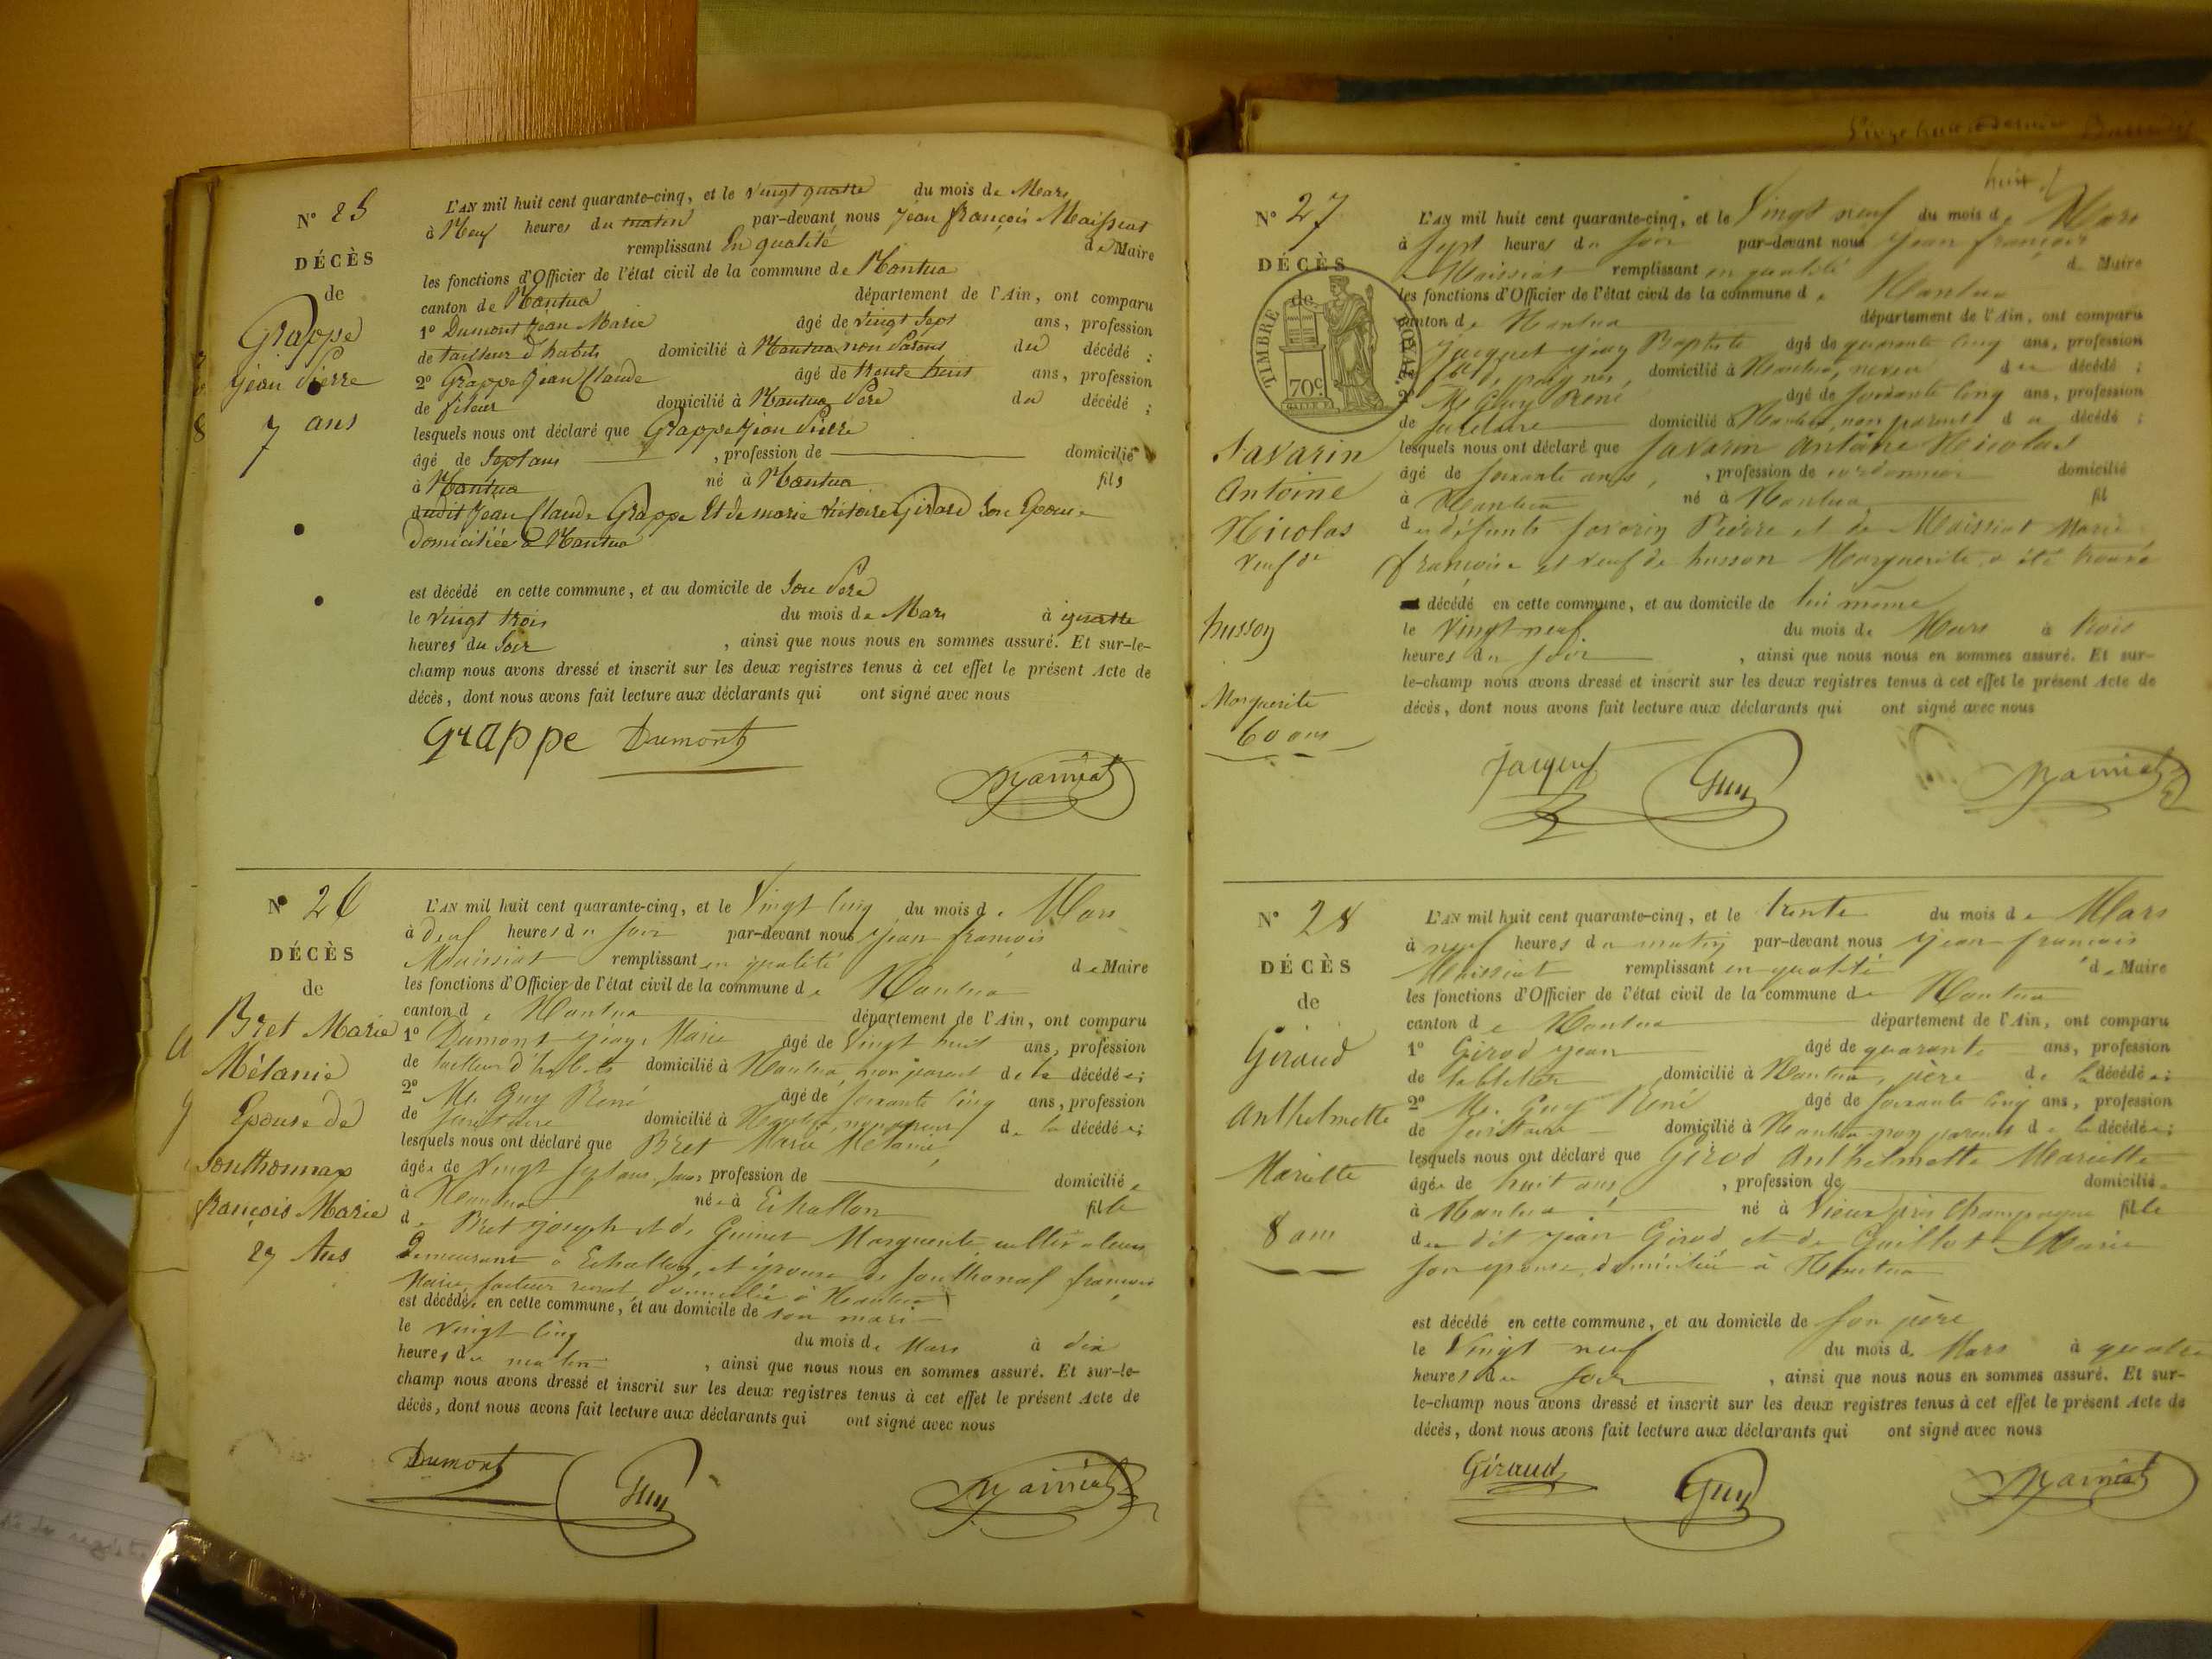 N° 25
DÉCÈS
de
Grappe
jean Pierre
7 ans
L'AN mil huit cent quarante-cinq, et le vingt quatre du mois de Mars
à Neuf heures du matin par-devant nous jean françois Maissiat
remplissant En qualité de Maire
les fonctions d'Officier de l'état civil de la commune de Nantua
canton de Nantua département de l'Ain, ont comparu
1° Dumont Jean Marie âgé de vingt Sept ans, profession
de tailleur d'habits domicilié à Nantua non Parent du décédé ;
2° Grappe Jean Claude âgé de trente huit ans, profession
de fileur domicilié à Nantua Père du décédé ;
lesquels nous ont déclaré que Grappe Jean Pierre
âgé de Sept ans , profession de domicilié
à Nantua né à Nantua fils
dudit Jean Claude Grappe Et de marie victoire Girard Son Epouse
Domiciliée à Nantua
est décédé en cette commune, et au domicile de Son Père
le vingt trois du mois de Mars à quatre
heures du Soir , ainsi que nous nous en sommes assuré. Et sur-le-
champ nous avons dressé et inscrit sur les deux registres tenus à cet effet le présent Acte de
décès, dont nous avons fait lecture aux déclarants qui ont signé avec nous
Grappe Dumont
Maissiat
N° 26
DÉCÈS
de
Bret Marie
Mélanie
Epouse de
Jonthonnax
françois Marie
27 Ans
L'AN mil huit cent quarante-cinq, et le Vingt cinq du mois de Mars
à deux heures du soir par-devant nous jean françois
Maissiat remplissant en qualité de Maire
les fonctions d'Officier de l'état civil de la commune de Nantua
canton de Nantua département de l'Ain, ont comparu
1° Dumont jean Marie âgé de Vingt huit ans, profession
de tailleur d'habits domicilié à Nantua, non parent de la décédée ;
2° Me Guy René âgé de soixante cinq ans, profession
de secrétaire domicilié à Nantua, non parent de la décédée ;
lesquels nous ont déclaré que Bret Marie Mélanie,
âgée de Vingt sept ans, sans profession de domiciliée
à Nantua née à Echallon fille
de Bret joseph et de Guinet Marguerite, cultivateurs
Demeurant à Echallon, et épouse de Jonthonax françois
Marie, facteur rural, domicilié à Nantua
est décédée en cette commune, et au domicile de son mari
le vingt cinq du mois de Mars à dix
heures du matin , ainsi que nous nous en sommes assuré. Et sur-le-
champ nous avons dressé et inscrit sur les deux registres tenus à cet effet le présent Acte de
décès, dont nous avons fait lecture aux déclarants qui ont signé avec nous
Dumont Guy Maissiat
N° 27
DÉCÈS
de
TIMBRE ROYAL
70c
Savarin
Antoine
Nicolas
Veuf de
husson
Marguerite
60 ans
L'AN mil huit cent quarante-cinq, et le Vingt neuf du mois de Mars
à sept heures du soir par-devant nous jean françois
Maissiat remplissant en qualité de Maire
les fonctions d'Officier de l'état civil de la commune de Nantua
canton de Nantua département de l'Ain, ont comparu
Jacquet jean Baptiste âgé de quarante cinq ans, profession
domicilié à Nantua, neveu du décédé ;
2° Me Guy René âgé de soixante cinq ans, profession
de secrétaire domicilié à Nantua, non parent du décédé ;
lesquels nous ont déclaré que Savarin Antoine Nicolas
âgé de soixante ans, , profession de cordonnier domicilié
à Nantua né à Nantua fil
des défunts Savarin Pierre et de Maissiat Marie
françoise et veuf de husson Marguerite, a été trouvé
décédé en cette commune, et au domicile de lui même
le Vingt neuf du mois de Mars à trois
heures du soir , ainsi que nous nous en sommes assuré. Et sur-
le-champ nous avons dressé et inscrit sur les deux registres tenus à cet effet le présent Acte de
décès, dont nous avons fait lecture aux déclarants qui ont signé avec nous
Jacquet Guy Maissiat
N° 28
DÉCÈS
de
Giraud
Anthelmette
Mariette
8 ans
L'AN mil huit cent quarante-cinq, et le trente du mois de Mars
à neuf heures du matin par-devant nous jean françois
Maissiat remplissant en qualité de Maire
les fonctions d'Officier de l'état civil de la commune de Nantua
canton de Nantua département de l'Ain, ont comparu
1° Girod jean âgé de quarante ans, profession
de tabletier domicilié à Nantua, père de la décédée ;
2° Me Guy René âgé de soixante cinq ans, profession
de secrétaire domicilié à Nantua non parent de la décédée ;
lesquels nous ont déclaré que Girod Anthelmette Mariette
âgée de huit ans , profession de domiciliée
à Nantua né à Vieux près Champagne fille
du dit jean Girod et de Guillot Marie
son épouse, domiciliée à Nantua
est décédé en cette commune, et au domicile de son père
le Vingt neuf du mois de Mars à quatre
heures du soir , ainsi que nous nous en sommes assuré. Et sur-
le-champ nous avons dressé et inscrit sur les deux registres tenus à cet effet le présent Acte de
décès, dont nous avons fait lecture aux déclarants qui ont signé avec nous
Giraud Guy Maissiat